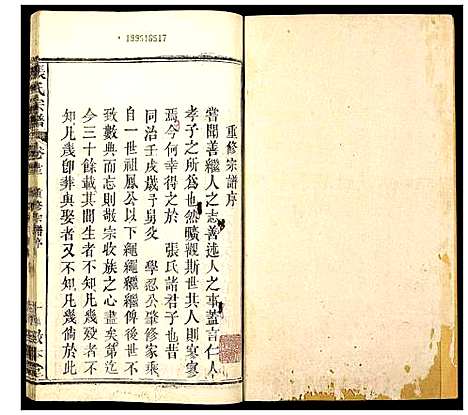 199516517
重修宗譜序
嘗聞善繼人之志善述人之事蓋言仁人
孝子之所為也然曠觀斯世其人則寥寥
焉今何幸得之於 張氏諸君子也昔
同治壬戌歲予舅父 學忍公肇修家乘
自一世祖鳳公以下繩繩繼繼俾後世不
致數典而忘則敬宗收族之心盡矣第迄
今三十餘載其間生者不知凡幾歿者不
知凡幾卽葬與娶者又不知凡幾倘於此
張氏宗譜
重修宗譜序